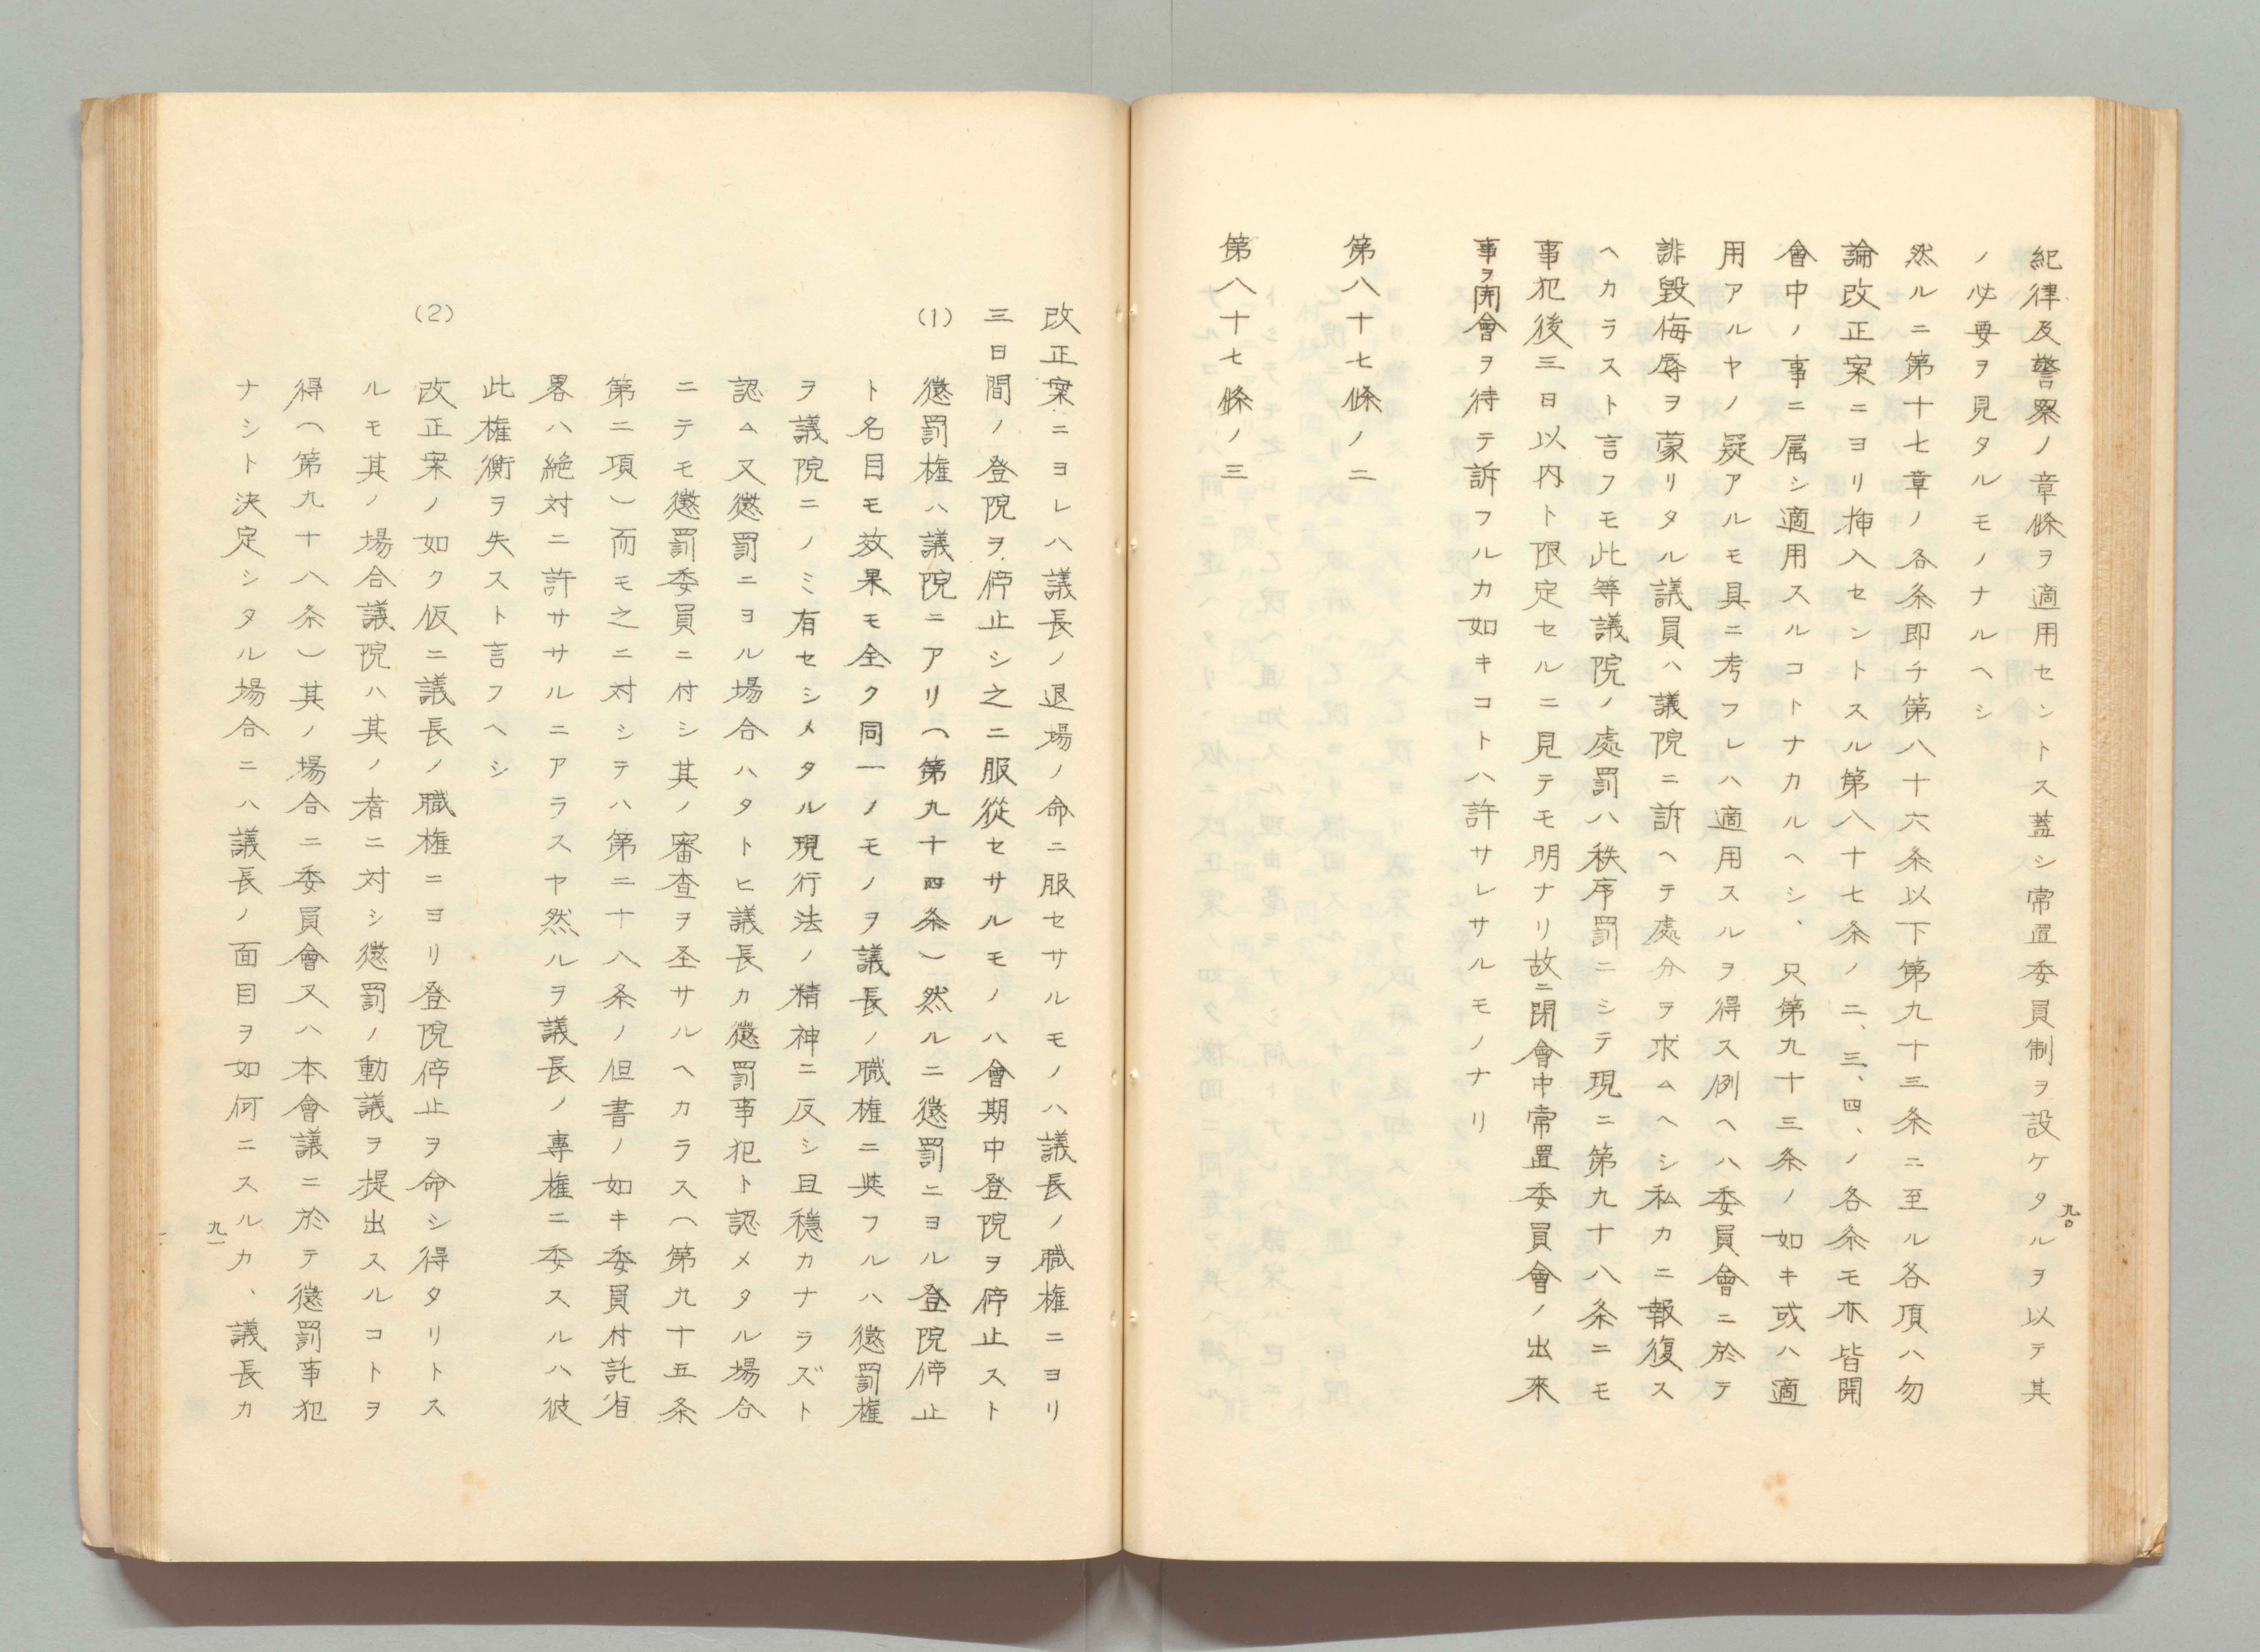 紀律及警察ノ章條ヲ適用セントス蓋シ常置委員制ヲ設ケタルヲ以テ其
ノ必要ヲ見タルモノナルヘシ
然ルニ第十七章ノ各条即チ第八十六条以下第九十三条ニ至ル各項ハ勿
論改正案ニヨリ挿入セントスル第八十七条ノ二、三、四、ノ各条モ亦皆開
會中ノ事ニ属シ適用スルコトナカルヘシ、只第九十三条ノ如キ或ハ適
用アルヤノ疑アルモ具ニ考フレハ適用スルヲ得ス例ヘハ委員會ニ於テ
誹毀侮辱ヲ蒙リタル議員ハ議院ニ訴ヘテ處分ヲ求ムヘシ私カニ報復ス
ヘカラスト言フモ此等議院ノ處罰ハ秩序罰ニシテ現ニ第九十八条ニモ
事犯後三日以内ト限定セルニ見テモ明ナリ故ニ閉會中常置委員會ノ出來
事ヲ開會ヲ待テ訴フルカ如キコトハ許サレサルモノナリ
第八十七條ノ二
第八十七條ノ三
九〇
改正案ニヨレハ議長ノ退場ノ命ニ服セサルモノハ議長ノ職権ニヨリ
三日間ノ登院ヲ停止シ之ニ服從セサルモノハ會期中登院ヲ停止スト
(1) 懲罰権ハ議院ニアリ(第九十四条)然ルニ懲罰ニヨル登院停止
ト名目モ效果モ全ク同一ノモノヲ議長ノ職権ニ與フルハ懲罰権
ヲ議院ニノミ有セシメタル現行法ノ精神ニ反シ且穏カナラズト
認ム又懲罰ニヨル場合ハタトヒ議長カ懲罰事犯ト認メタル場合
ニテモ懲罰委員ニ付シ其ノ審査ヲ圣サルヘカラス(第九十五条
第二項)而モ之ニ対シテハ第二十八条ノ但書ノ如キ委員付託省
畧ハ絶対ニ許ササルニアラスヤ然ルヲ議長ノ專権ニ委スルハ彼
此権衡ヲ失スト言フヘシ
(2) 改正案ノ如ク仮ニ議長ノ職権ニヨリ登院停止ヲ命シ得タリトス
ルモ其ノ場合議院ハ其ノ者ニ対シ懲罰ノ動議ヲ提出スルコトヲ
得(第九十八条)其ノ場合ニ委員會又ハ本會議ニ於テ懲罰事犯
ナシト決定シタル場合ニハ議長ノ面目ヲ如何ニスルカ、議長カ
九一